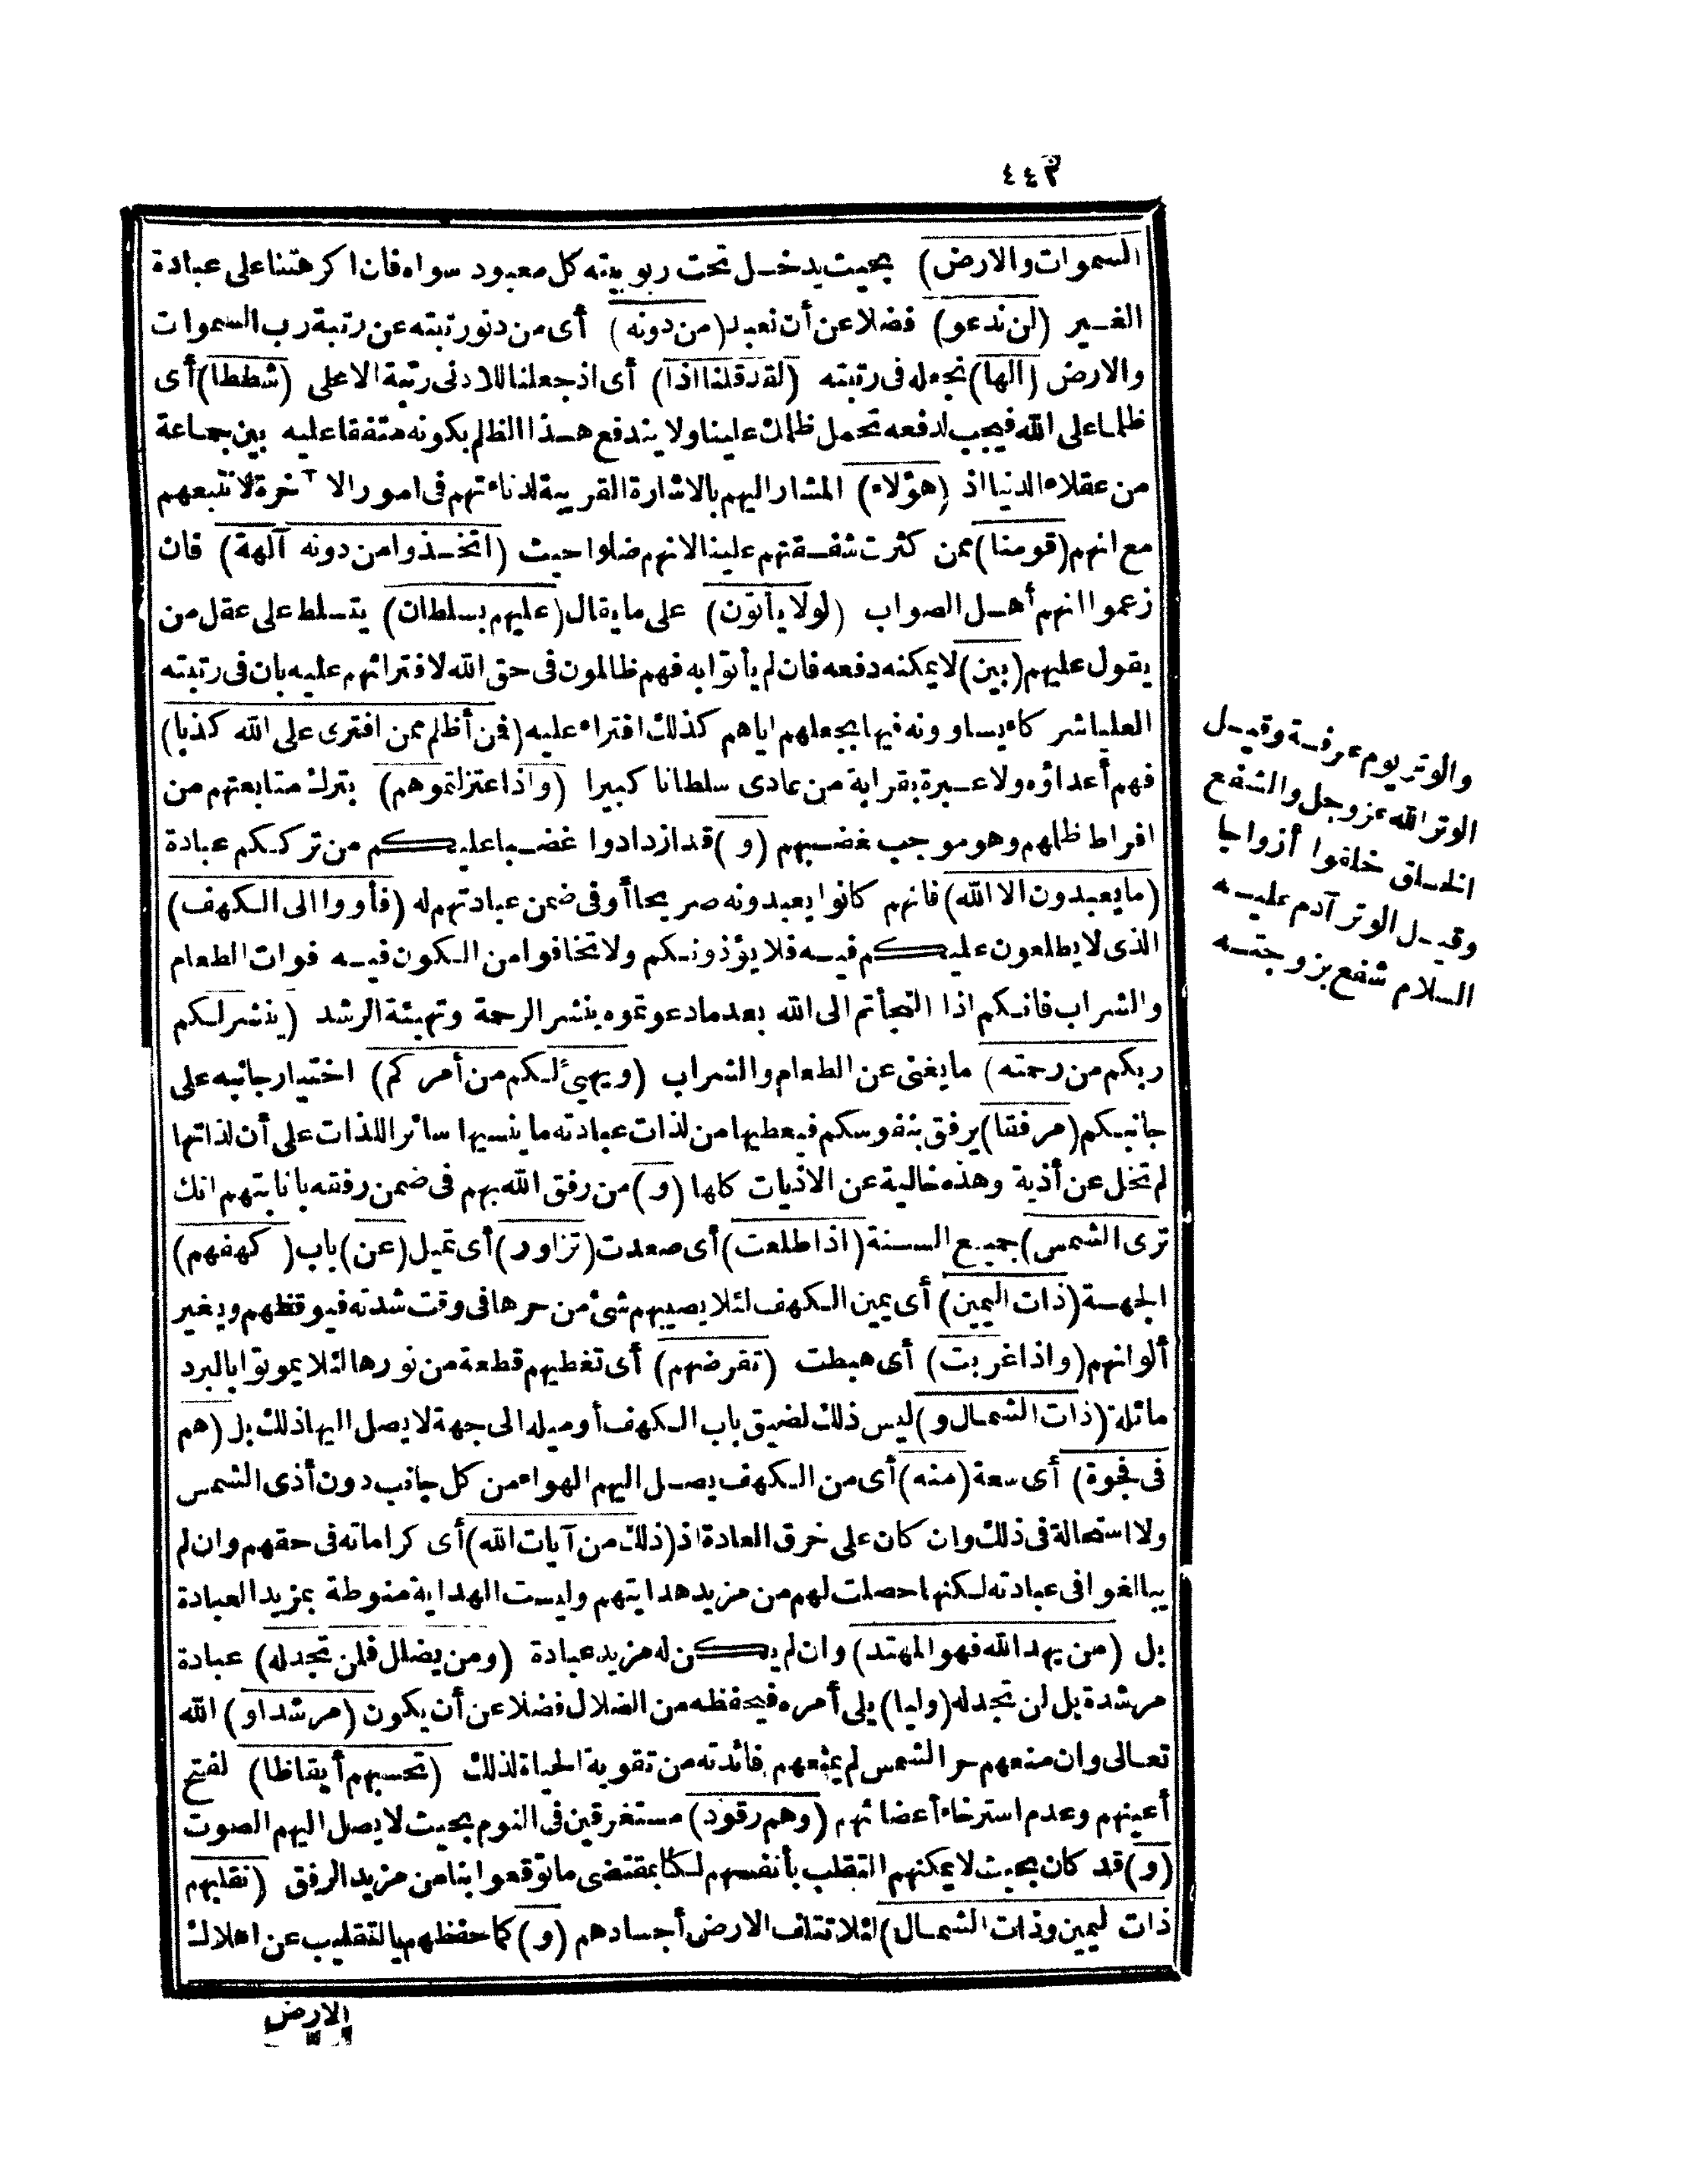 ٤٤٣
السموات والارض) بحيث يدخل تحت ربوبيته كل معبود سواه فان اكرهتنا على عبادة
الغير (لن ندعو) فضلا عن أن نعبد (من دونه) أى من دنو رتبته عن رتبة رب السموات
والارض (الها) نجعله فى رتبته (لقد قلنا اذا) أى اذ جعلنا للادنى رتبة الاعلى (شططا) أى
ظلما على الله فيجب لدفعه تحمل ظلمك علينا ولا يندفع هذا الظلم بكونه متفقا عليه بين جماعة
من عقلاء الدنيا اذ (هؤلاء) المشار اليهم بالاشارة القريبة لدناءتهم فى امور الآخرة لا نتبعهم
مع انهم (قومنا) ممن كثرت شفقتهم علينا لانهم ضلوا حيث (اتخذوا من دونه آلهة) فان
زعموا انهم أهل الصواب (لولا يأتون) على ما يقال (عليهم بسلطان) يتسلط على عقل من
يقول عليهم (بين) لا يمكنه دفعه فان لم يأتوا به فهم ظالمون فى حق الله لافترائهم عليه بان فى رتبته
العليا شركاء يساوونه فيها بجعلهم اياهم كذلك افتراء عليه (فمن أظلم ممن افترى على الله كذبا)
فهم أعداؤه ولا عبرة بقرابة من عادى سلطانا كبيرا (واذ اعتزلتموهم) بترك متابعتهم من
افراط ظلمهم وهو موجب غضبهم (و) قد ازدادوا غضبا عليكم من ترككم عبادة
(ما يعبدون الا الله) فانهم كانوا يعبدونه صريحا أو فى ضمن عبادتهم له (فأووا الى الكهف)
الذى لا يطلعون عليكم فيه فلا يؤذونكم ولا تخافوا من الكون فيه فوات الطعام
والشراب فانكم اذا التجأتم الى الله بعد ما دعوتموه بنشر الرحمة وتهيئة الرشد (ينشر لكم
ربكم من رحمته) ما يغنى عن الطعام والشراب (ويهيئ لكم من أمركم) اختيار جانبه على
جانبكم (مرفقا) يرفق بنفوسكم فيعطيها من لذات عبادته ما ينسيها سائر اللذات على أن لذاتها
لم تخل عن أذية وهذه خالية عن الاذيات كلها (و) من رفق الله بهم فى ضمن رفقه بانابتهم انك
ترى الشمس) جميع السنة (اذا طلعت) أى صعدت (تزاور) أى تميل (عن) باب (كهفهم)
الجهة (ذات اليمين) أى يمين الكهف لئلا يصيبهم شئ من حرها فى وقت شدته فيوقظهم ويغير
ألوانهم (واذا غربت) أى هبطت (تقرضهم) أى تغطيهم قطعة من نورها لئلا يموتوا بالبرد
مائلة (ذات الشمال و) ليس ذلك لضيق باب الكهف أو ميله الى جهة لا يصل اليها ذلك بل (هم
فى فجوة) أى سعة (منه) أى من الكهف يصل اليهم الهواء من كل جانب دون أذى الشمس
ولا استحالة فى ذلك وان كان على خرق العادة اذ (ذلك من آيات الله) أى كراماته فى حقهم وان لم
يبالغوا فى عبادته لكنها حصلت لهم من مزيد هدايتهم وليست الهداية منوطة بمزيد العبادة
بل (من يهد الله فهو المهتد) وان لم يكن له مزيد عبادة (ومن يضلل فلن تجد له) عبادة
مرشدة بل لن تجد له (وليا) يلى أمره فيحفظه من الضلال فضلا عن أن يكون (مرشدا و) الله
تعالى وان منعهم حر الشمس لم يمنعهم فائدته من تقوية الحياة لذلك (تحسبهم أيقاظا) لفتح
أعينهم وعدم استرخاء أعضائهم (وهم رقود) مستغرقين فى النوم بحيث لا يصل اليهم الصوت
(و) قد كان بحيث لا يمكنهم التقلب بأنفسهم لكنا بمقتضى ما توقعوا بنا من مزيد الرفق (نقلبهم
ذات ليمين وذات الشمال) لئلا تتلف الارض أجسادهم (و) كما حفظهم بالتقليب عن اهلاك
الارض
والوتر يوم عرفة وقيل
الوتر الله عز وجل والشفع
الخلق خلقوا أزواجا
وقيل الوتر آدم عليه
السلام شفع بزوجته